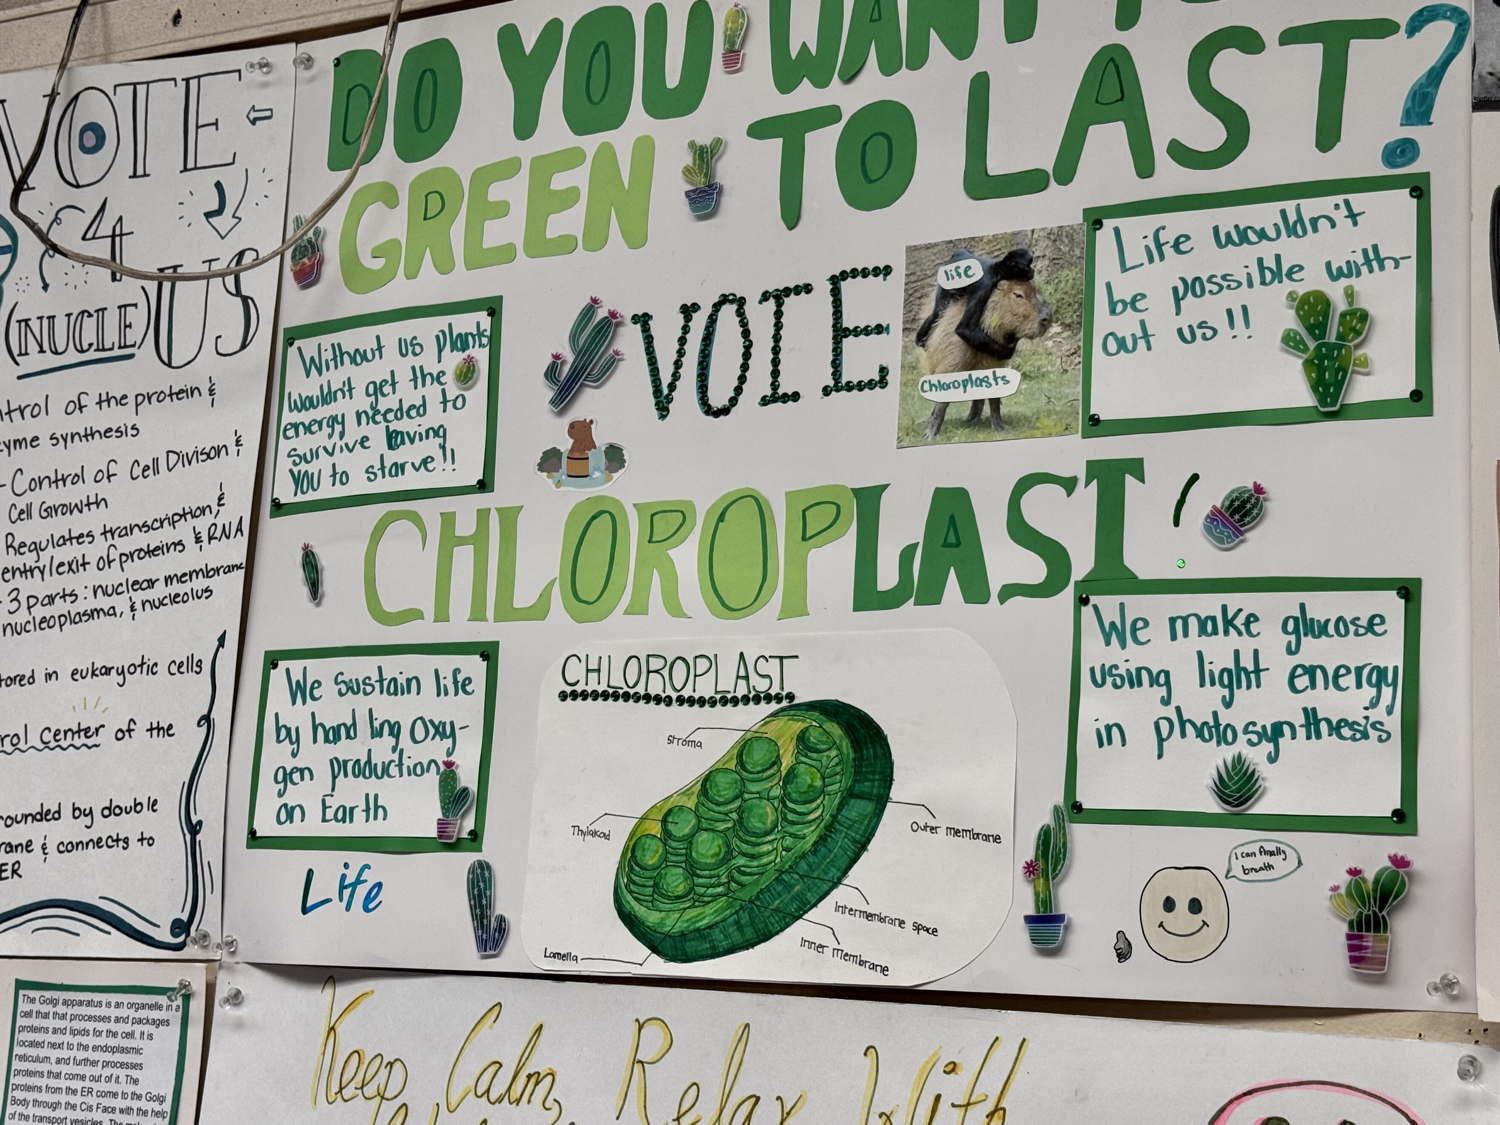 VOTE
4
(NUCLE)US
ntrol of the protein &
zyme synthesis
- Control of Cell Divison &
Cell Growth
Regulates transcription, &
entry/exit of proteins & RNA
- 3 parts: nuclear membrane
nucleoplasma, & nucleolus
tored in eukaryotic cells
rol center of the
rounded by double
rane & connects to
ER
The Golgi apparatus is an organelle in a
cell that that processes and packages
proteins and lipids for the cell. It is
located next to the endoplasmic
reticulum, and further processes
proteins that come out of it. The
proteins from the ER come to the Golgi
Body through the Cis Face with the help
of the transport vesicles. The
DO YOU WANT
GREEN TO LAST?
VOTE
life
Chloroplasts
Life wouldn't
be possible with-
out us!!
Without us plants
wouldn't get the
energy needed to
survive leaving
YOU to starve!!
CHLOROPLAST!
We sustain life
by hand ling Oxy-
gen production
on Earth
Life
CHLOROPLAST
Stroma
Thylakoid
Outer membrane
Intermembrane space
Inner membrane
Lamella
We make glucose
using light energy
in photosynthesis
I can finally
breath
Keep Calm, Relax With